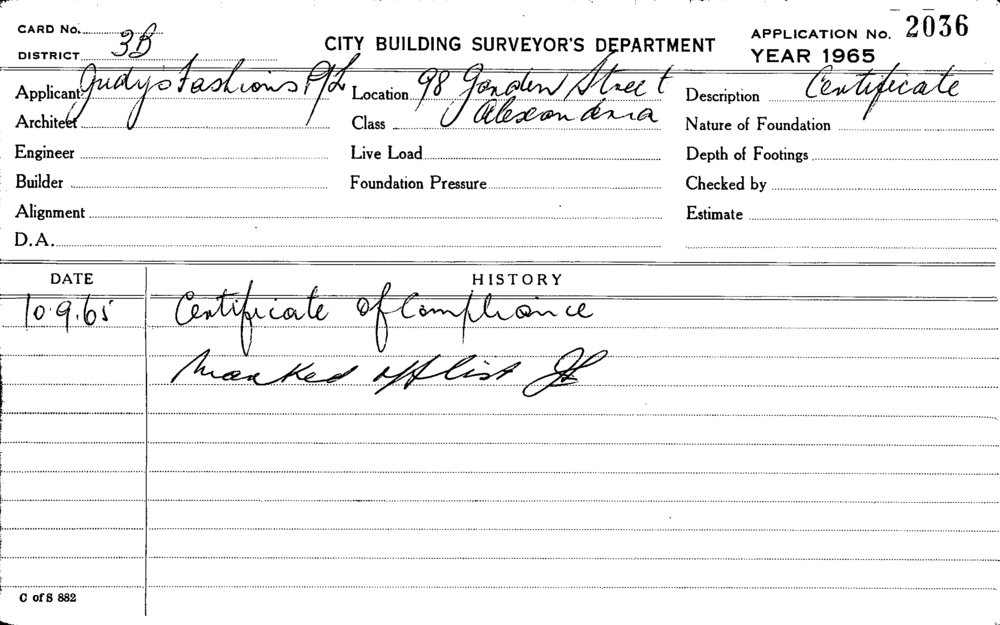 CARD No.
DISTRICT 3B
CITY BUILDING SURVEYOR'S DEPARTMENT
APPLICATION No. 2036
YEAR 1965
Applicant Judy's Fashions P/L
Location 98 Garden Street
Alexandria
Description Certificate
Architect
Class
Nature of Foundation
Engineer
Live Load
Depth of Footings
Builder
Foundation Pressure
Checked by
Alignment
Estimate
D.A.
DATE
HISTORY
10.9.65 Certificate of Compliance
marked off list
C of S 882